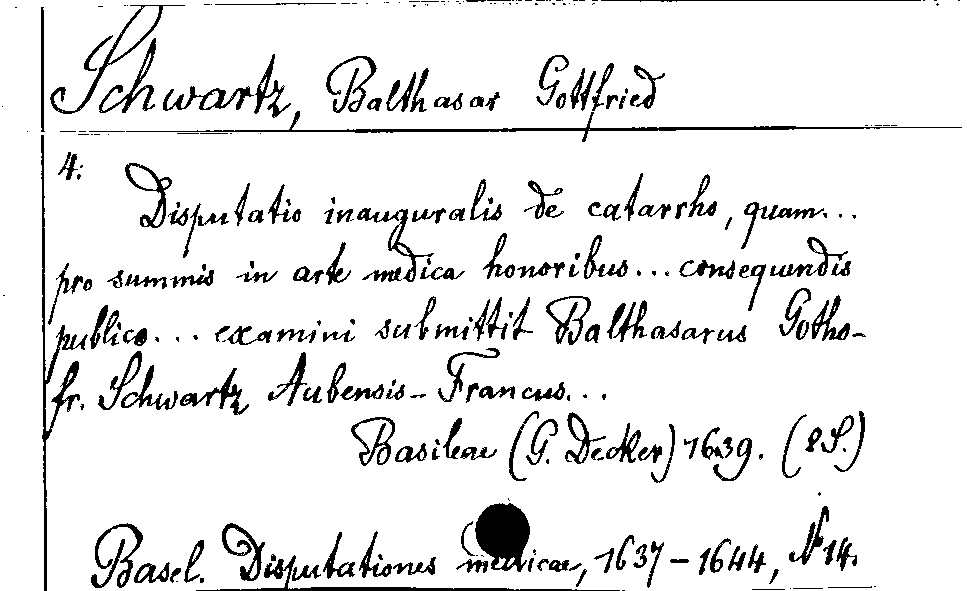 Schwartz, Balthasar Gottfried
4.
Disputatio inauguralis de catarrho, quam...
pro summis in arte medica honoribus... consequendis
publico... examini submittit Balthasarus Gotho-
fr. Schwartz Aubensis-Francus...
Basileae (G. Decker) 1639. (8 S.)
Basel. Disputationes medicae, 1637-1644, No 14.